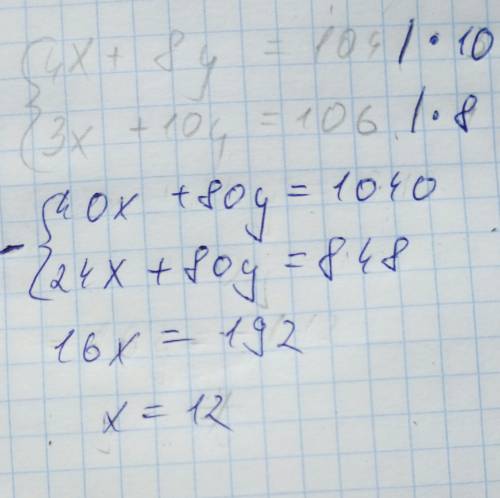 4x + 8y = 104 | · 10
3x + 10y = 106 | · 8
40x + 80y = 1040
- 24x + 80y = 848
16x = 192
x = 12